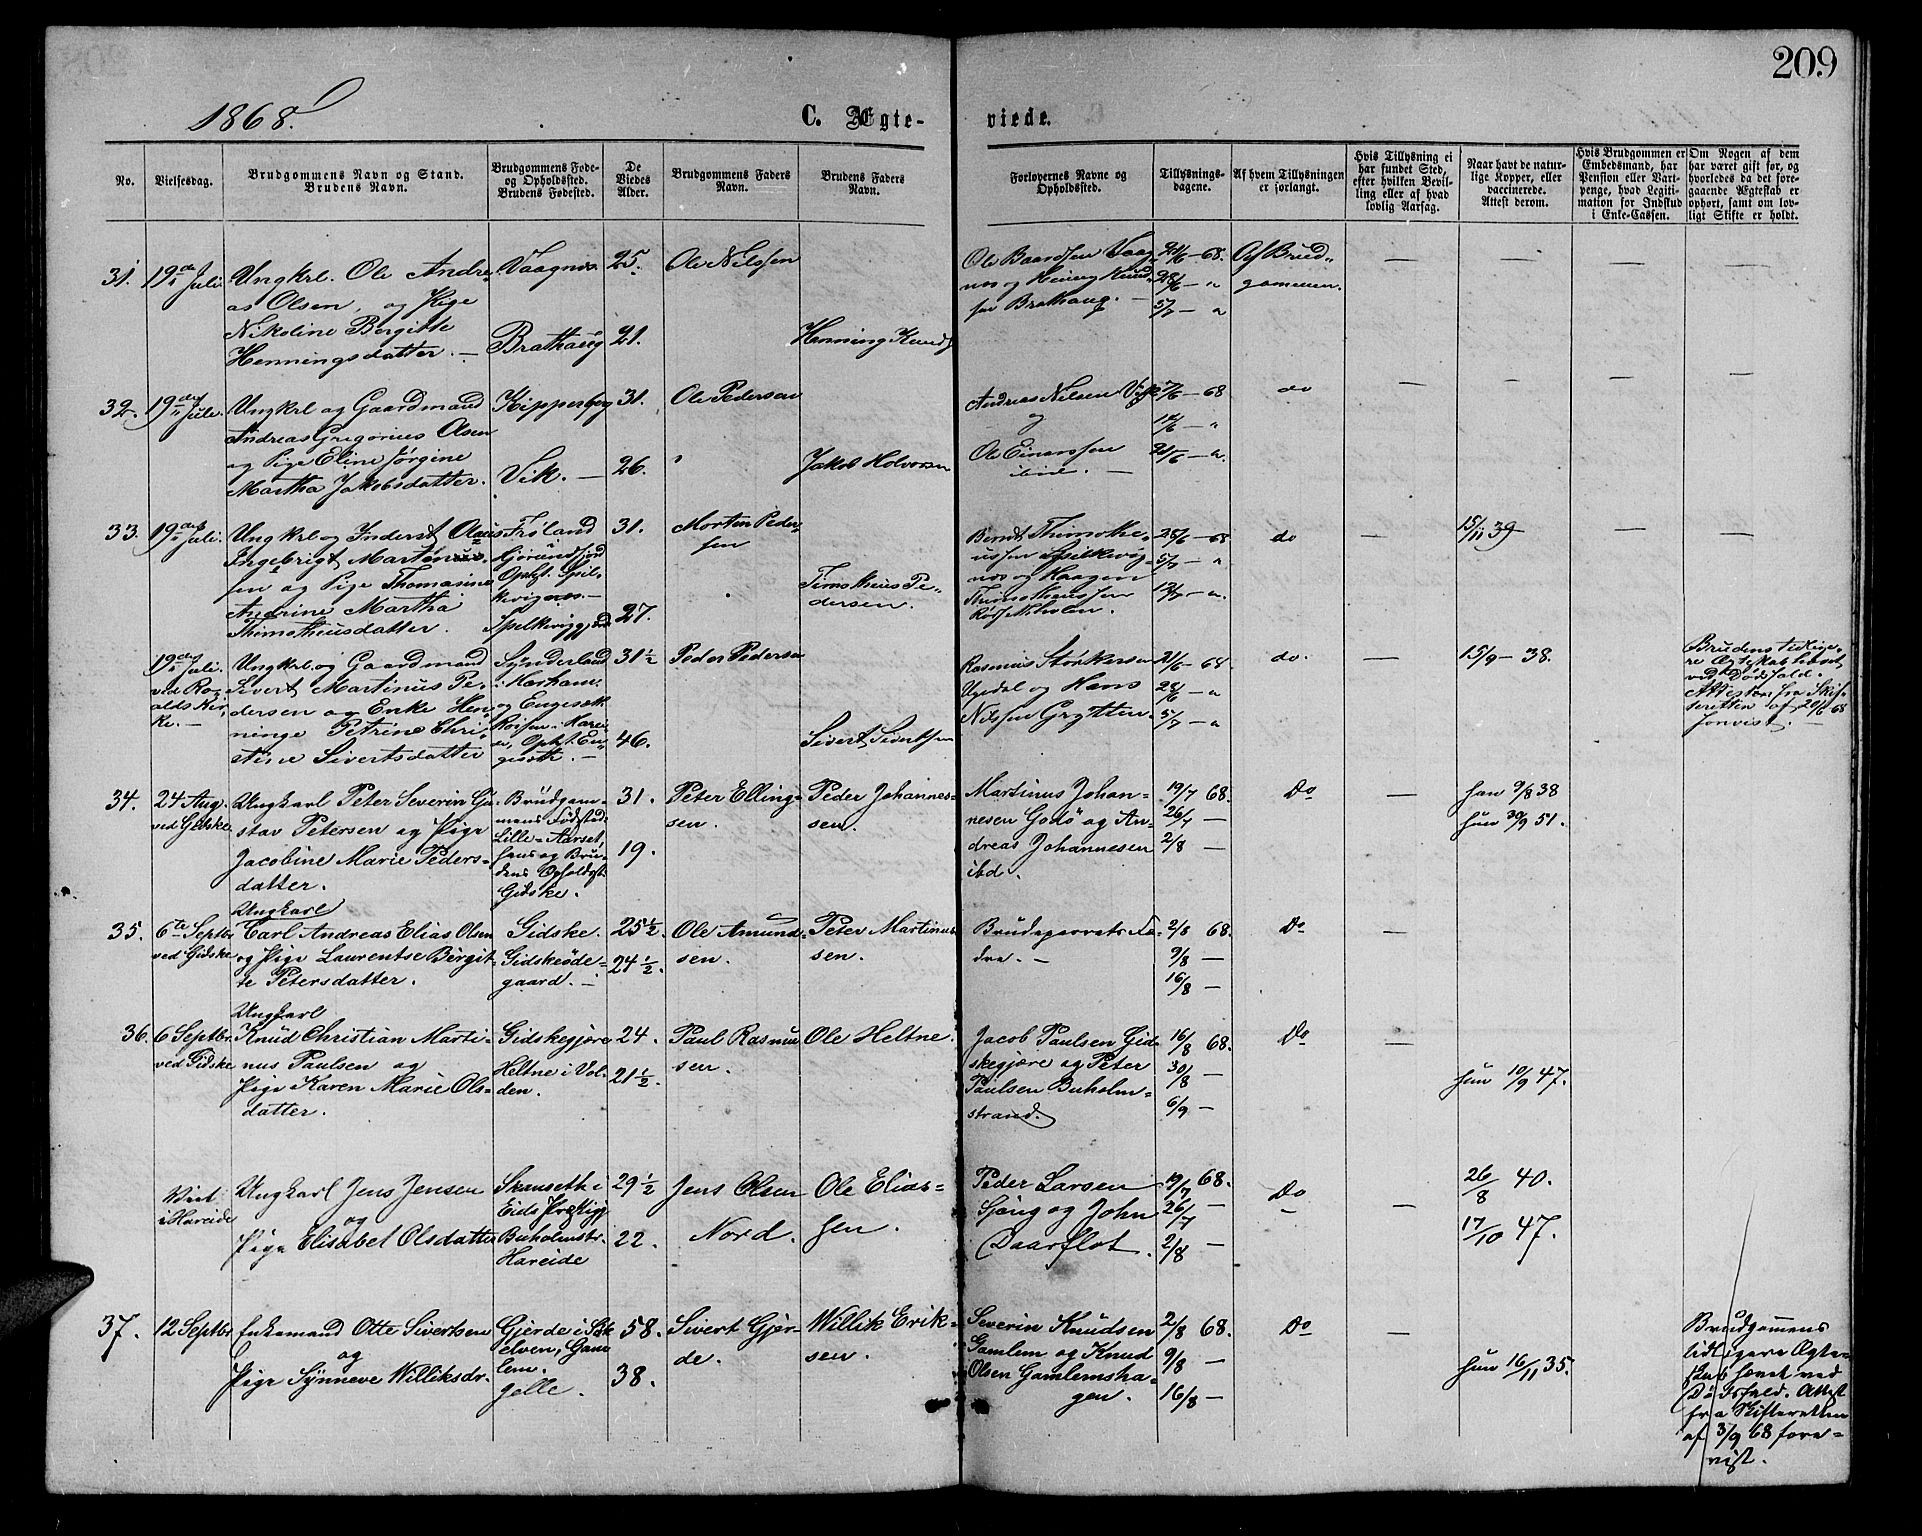 209
1868.
C. Ægte-
viede.
No.
Vielsesdag.
Brudgommens Navn og Stand.
Brudens Navn.
Brudgommens Føde-
og Opholdssted.
Brudens Fødested.
De
Viedes
Alder.
Brudgommens Faders
Navn.
Brudens Faders
Navn.
Forlovernes Navne og
Opholdssted.
Tillysnings-
dagene.
Af hvem Tillysningen
er forlangt.
Hvis Tillysning ei
har fundet Sted,
efter hvilken Bevil-
ling eller af hvad
lovlig Aarsag.
Naar havt de natur-
lige Kopper, eller
vaccinerede.
Attest derom.
Hvis Brudgommen er
Embedsmand, har
Pension eller Vart-
penge, hvad Legiti-
mation for Indskud
i Enke-Cassen.
Om Nogen af dem
har været gift før, og
hvorledes da det fore-
gaaende Ægteskab er
ophørt, samt om lov-
ligt Skifte er holdt.
31.
19de Juli.
Ungkrl. Ole Andre-
as Olsen, og Pige
Nikoline Bergitte
Henningsdatter. —
Vaagnæs
Brathaug
25.
21.
Ole Nilssen
Henning Knuds
Ole Baardsen Vaag-
nes og Hening Knud-
sen Brathaug. —
21/6 — 68.
28/6 — "
5/7 — "
Af Brud-
gommen.
32.
19de Juli.
Ungkrl og Gaardmand
Andreas Gregorius Olsen
og Pige Eline Jørgine
Martha Jakobsdatter.
Kipperberg
Vik. —
31.
26.
Ole Pedersen
Jakob Holvorsen
Andreas Nilsen
og
Ole Einarssen
ibid. —
7/6 — 68
— "
21/6 — "
do
33.
19de Juli.
Ungkrl og Inderst Olaus
Ingebrigt Martinus
sen og Pige Thomasine
Andrine Martha
Thimotheusdatter.
Frøland
Hjørundfjord
Opht. Spil-
kevignes. —
31.
27.
Morten Peder-
sen
Timotheus Pe-
dersen.
Berndt Thimothe-
ussen Spilkevig-
nes og Haagen
Thimotheussen
28/6 — 68
5/7 — "
12/7 — "
do
15/11 39
19de Juli.
ved Ro-
alds Kir-
ke. —
Ungkrl. og Gaardmand
Sivert Martinus Pe-
dersen og Enke Hen-
ninge Petrine Chri-
stine Sivertsdatter
Synderland
i Harham
og Engeseth
Opht. En-
geseth. —
31 1/2
46.
Peder Pedersen
Sivert Sivertsen
Rasmus Størkersen
Ugedal og Hans
Nilssen Grytten
21/6 — 68
28/6 — "
5/7 — "
do.
15/9 — 38.
Brudens tidlige-
re Ægteskab hævet
ved Dødsfald.
Attest fra Skif-
teretten af 20/6 68
forevist. —
34.
24 Aug.
ved Gidske
Ungkarl Peter Severin Gu-
stav Petersen og Pige
Jacobine Marie Peders-
datter.
Brudgom-
mens Fødsted
Lille-Aarset,
hans og Bru-
dens Opholdst.
Gidske.
31.
19.
Peter Elling-
sen.
Peder Johannes-
sen.
Martinus Johan-
nesen Godø og An-
dreas Johannesen
ibd.
19/7 68.
26/7 —
2/8 —
Do
han 9/8 38
hun 30/9 51.
35.
6te Septbr
ved Gidske
Ungkarl
Carl Andreas Elias Olsen
og Pige Laurentse Bergit-
te Petersdatter.
Gidske.
Gidskeøde-
gaard. —
25 1/2
24 1/2
Ole Amund-
sen.
Peter Martinus-
sen.
Brudeparrets Fæ-
dre. —
2/8 68.
9/8 —
16/8 —
Do
36.
6 Septbr
ved Gidske
Ungkarl
Knud Christian Marti-
nus Paulsen og
Pige Karen Marie Ols-
datter.
Gidskegjære
Heltne i Vol-
den.
24.
21 1/2.
Paul Rasmus-
sen.
Ole Heltne.
Jacob Paulsen Gid-
skegjære og Peter
Paulsen Buholm-
strand.
16/8 68.
30/8 —
6/9 —
Do
hun 10/9 47.
Viet
i Hareide
Ungkarl Jens Jensen
og
Pige Elisabet Olsdatter
Skanseth i
Eids
Buholmstr.
Hareide
29 1/2
22.
Jens Olsen
Nord.
Ole Elias-
sen.
Peder Larsen
Sjong og John
Daarflot.
19/7 68.
26/7 —
2/8 —
Do
26/8 40.
17/10 47.
37.
12 Septbr
Enkemand Otte Sivertsen
og
Pige Synneve Williksdr.
Gjerde i Sø-
kelven, Gam-
lem.
Gjelle.
58.
38.
Sivert Gjer-
de.
Willik Erik-
sen.
Severin Knudsen
Gamlem og Knud
Olsen Gamlemsha-
gen.
2/8 68.
9/8 —
16/8 —
Do
hun 16/11 35.
Brudgommens
tidligere Ægte-
skab hævet ved
Dødsfald. Attest
fra Skifteretten
af 3/9 68 fore-
vist.